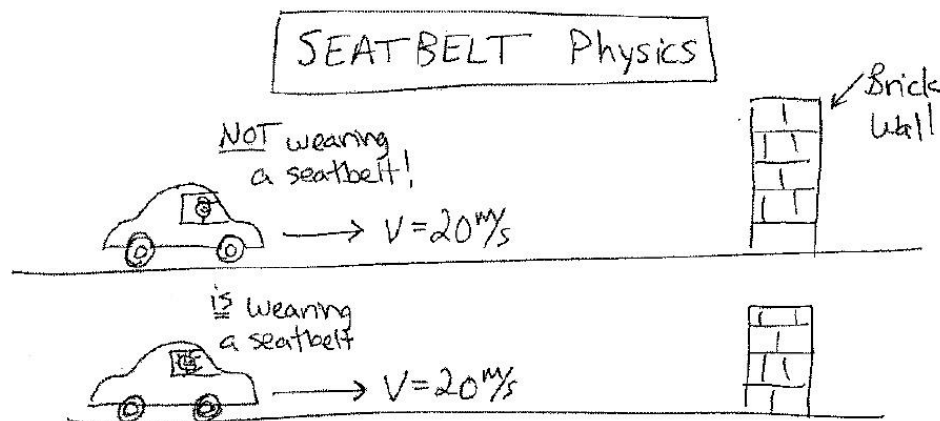 SEATBELT Physics
Brick
Wall
NOT wearing
a seatbelt!
V=20m/s
is wearing
a seatbelt
V=20m/s